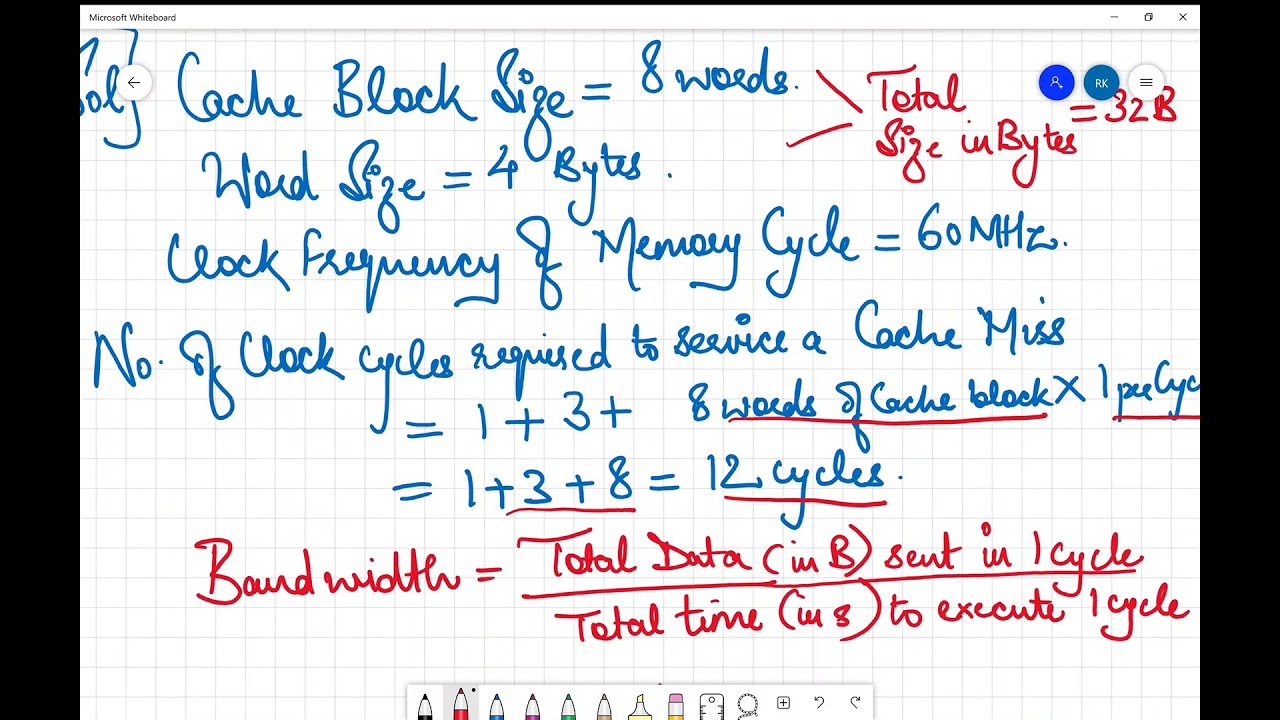 Microsoft Whiteboard
Sol] Cache Block Size = 8 words.
Total
Size in Bytes = 32B
RK
Word Size = 4 Bytes.
Clock Frequency of Memory Cycle = 60 MHz.
No. of Clock cycles required to service a Cache Miss
= 1 + 3 + 8 words of Cache block X 1 per Cyc
= 1 + 3 + 8 = 12 cycles.
Bandwidth = Total Data (in B) sent in 1 cycle
Total time (in s) to execute 1 cycle